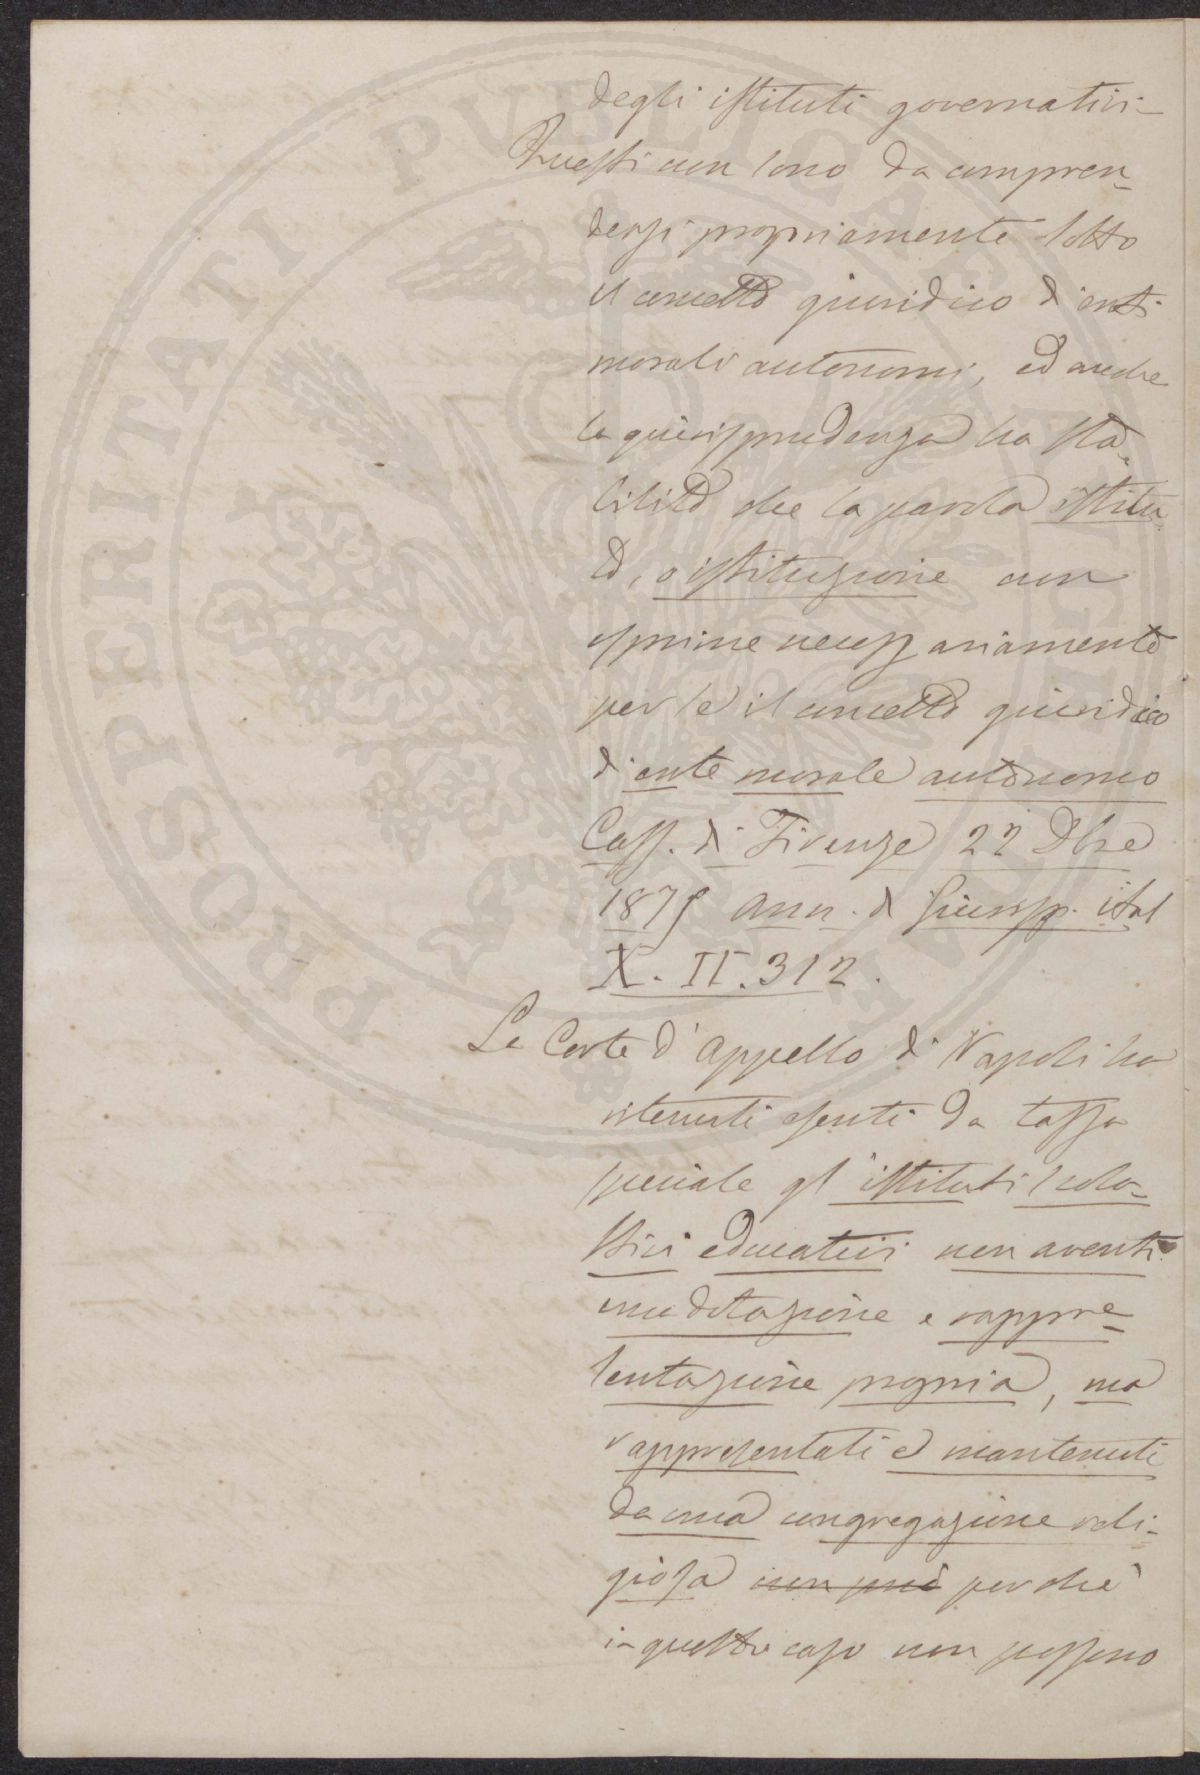 degli istituti governativi -
Questi non sono da compren-
dersi propriamente sotto
il concetto giuridico di enti
morali autonomi, ed anche
la giurisprudenza ha sta-
bilito che la parola istitu-
to, o istituzione non
esprime necessariamente
per se il concetto giuridico
di ente morale autonomo
Cass. di Firenze 22 Dbre
1875 Ann. di Giurisp. ital
X. II. 312.
La Corte d'Appello di Napoli ha
ritenuti esenti da tassa
speciale gl'istituti scola-
stici educativi non aventi
una dotazione e rappre-
sentazione propria, ma
rappresentati e mantenuti
da una congregazione reli-
giosa non può perchè
in questo caso non possono
PROSPERITATI PUBLICAE AUGENDAE